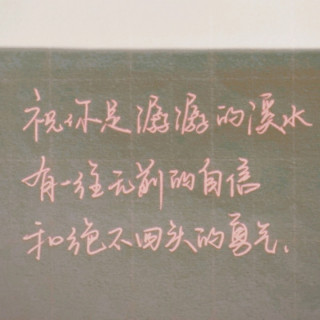 祝你是潺潺的溪水
有一往无前的自信
和绝不回头的勇气、